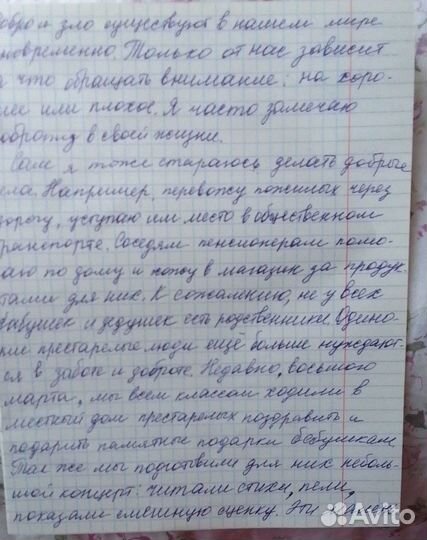 добро и зло существуют в нашем мире
новременно. Только от нас зависит
а что обращать внимание: на хоро-
шее или плохое. Я часто замечаю
оброту в своей жизни.
Сам я тоже стараюсь делать добрые
ела. Например, перевожу пожилых через
орогу, уступаю им место в общественном
ранспорте. Соседям пенсионерам помо-
гаю по дому и хожу в магазин за продук-
тами для них. К сожалению, не у всех
бабушек и дедушек есть родственники. Одино-
кие престарелые люди ещё больше нуждают-
ся в заботе и доброте. Недавно, восьмого
марта, мы всем классом ходили в
местный дом престарелых поздравить и
подарить памятные подарки бабушкам.
Так же мы подготовили для них неболь-
шой концерт: читали стихи, пели,
показали смешную сценку. Эти
Avito